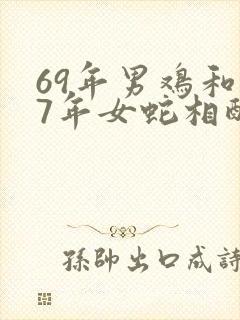 69年男鸡和
7年女蛇相配
孫帥出口成詩